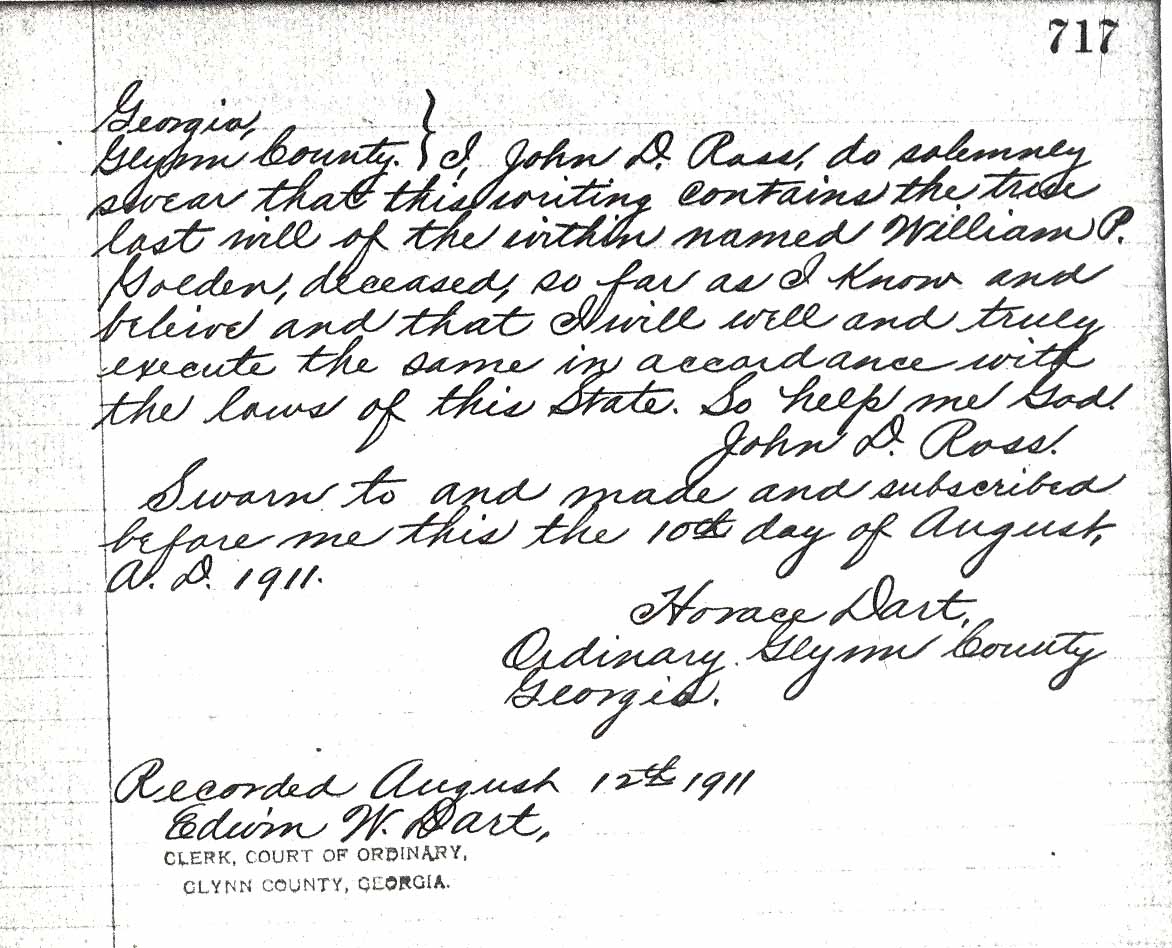 717
Georgia,
Glynn County. } I, John D. Ross, do solemney
swear that this writing contains the true
last will of the within named William P.
Golden, deceased, so far as I know and
beleive and that I will well and truly
execute the same in accordance with
the laws of this State. So help me God.
John D. Ross.
Sworn to and made and subscribed
before me this the 10th day of August,
A. D. 1911.
Horace Dart,
Ordinary Glynn County
Georgia.
Recorded August 12th 1911
Edwin W. Dart,
CLERK, COURT OF ORDINARY,
GLYNN COUNTY, GEORGIA.